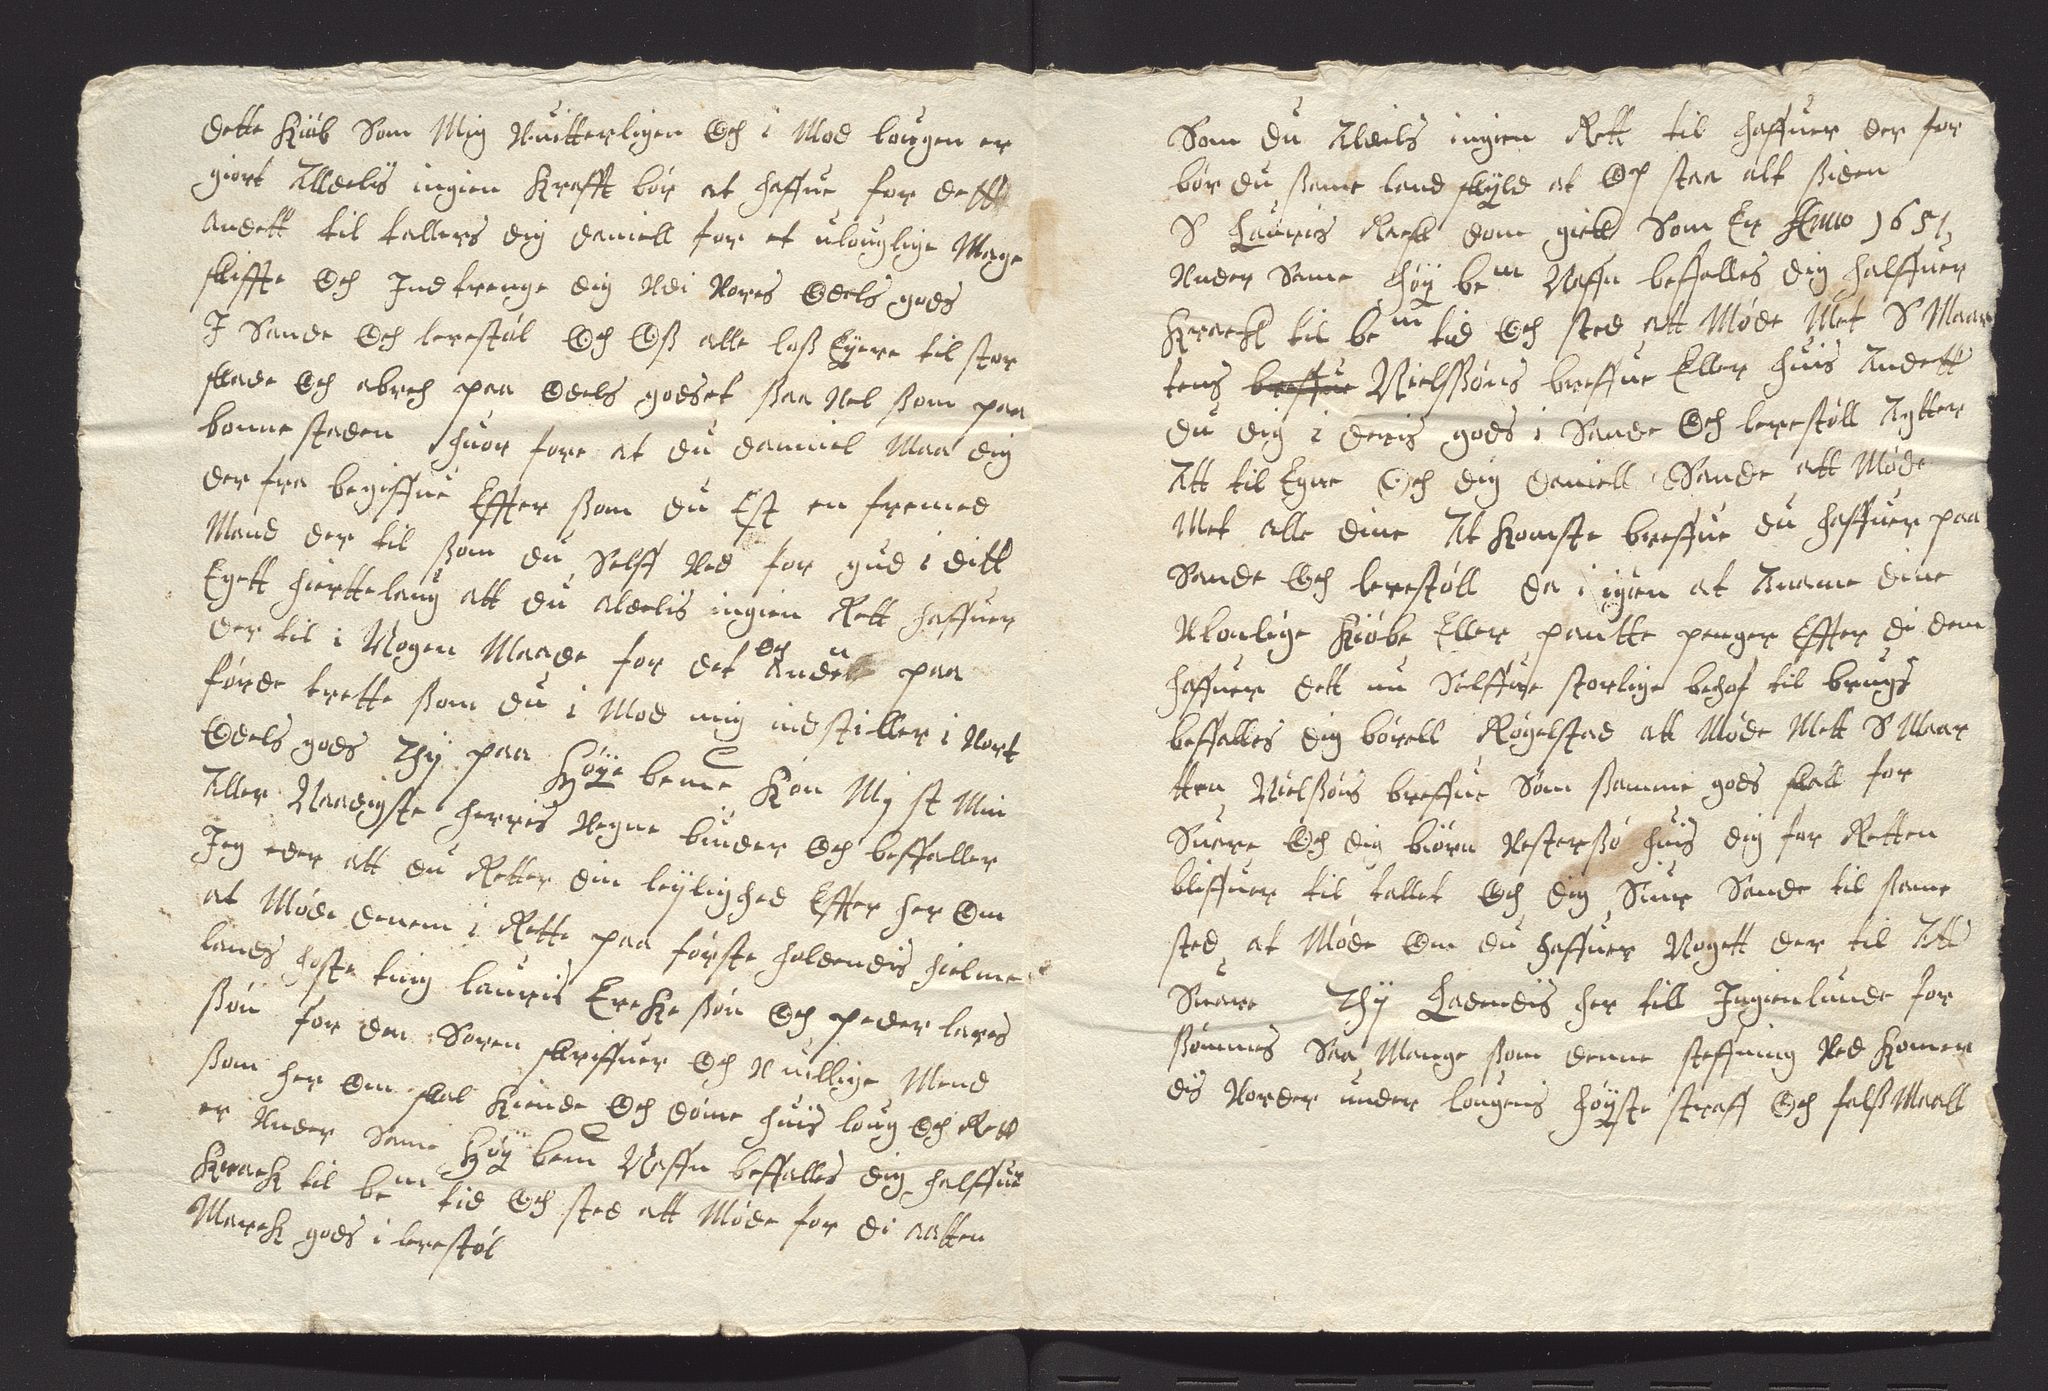 dette Kiøb Som Mig Vuitterligen Och i Mod lougen er
giort Alldelis ingien Krafft bør at haffue for dett
andett til tallers dig daniell for et ulouglige Mage
skiffte Och Indtrenge dig Udi Vores Odels gods
I Sande Och lerestøl Och Oß alle loß Eÿere til stor
skade Och abrech paa Odels godset ßaa Vel ßom paa
bonne staden huor fore at du daniel Maa dig
der fra begiffue Effter ßom du Est en fremed
Mand der til ßom du Selff Ved for gud i ditt
Egett hiertte laug att du aldelis ingien Rett haffuer
der til i Nogen Maade for det Och Andet paa
førde trette ßom du i Mod mig indstiller i Vort
Odels gods Thÿ paa Høÿe beme Kon Mÿ st Min
Aller Naadigste herris Vegne biuder Och beffaller
Jeg eder att du Retter din leÿlighed Effter her Om
at Møde denem i Rette paa første holdendis hielme
lands høste ting lauris Ereksßøn Och peder lares
ßøn for den Soren skriffuer Och Vuillige Mend
ßom her Om skal Kiende Och døme huis loug Och Rett
er Under Same Høÿ bem Naffn beffalles dig halffuer
Kraek til bem tid Och sted att Møde for di aatten
Marck gods i lerestøl
Som du Aldels ingien Rett til haffuer der for
bør du ßame land skÿld at Och staa alt ßiden
S Lauris dom gick Som Er Anno 1651
Under Same høÿ bem Naffn beffalles dig halffuer
Kraeck til bem tid Och sted att Møde Met S Maar
tens breffue Nielßøns breffue Eller huis Andett
du dig i deris gods i Sande Och lerestøll Agtter
Att til Egne Och dig Daniell Sande att Møde
Met alle dine At Komste breffue du haffuer paa
Sande Och lerestøll da i igien at Aname dine
Ulovlige Kiøbe Eller pantte penger Effter di dem
haffuer dett nu Selffue storlige behof til brugs
beffalles dig børell Røgelstad att Møde Mett S Maar
tten Nielßøns breffue Som ßamme gods skall for
Suare Och dig biørn Vesterßø huis dig for Retten
bliffuer til tallet Och dig Siur Sande til ßame
sted at Møde Om du haffuer Nogett der til Att
Suare Thÿ Ladendis her till Ingienlunde for
ßømmes Saa Mange ßom denne steffning Ved Komen
dis Vorder under lougens høÿste straff Och falß Maall